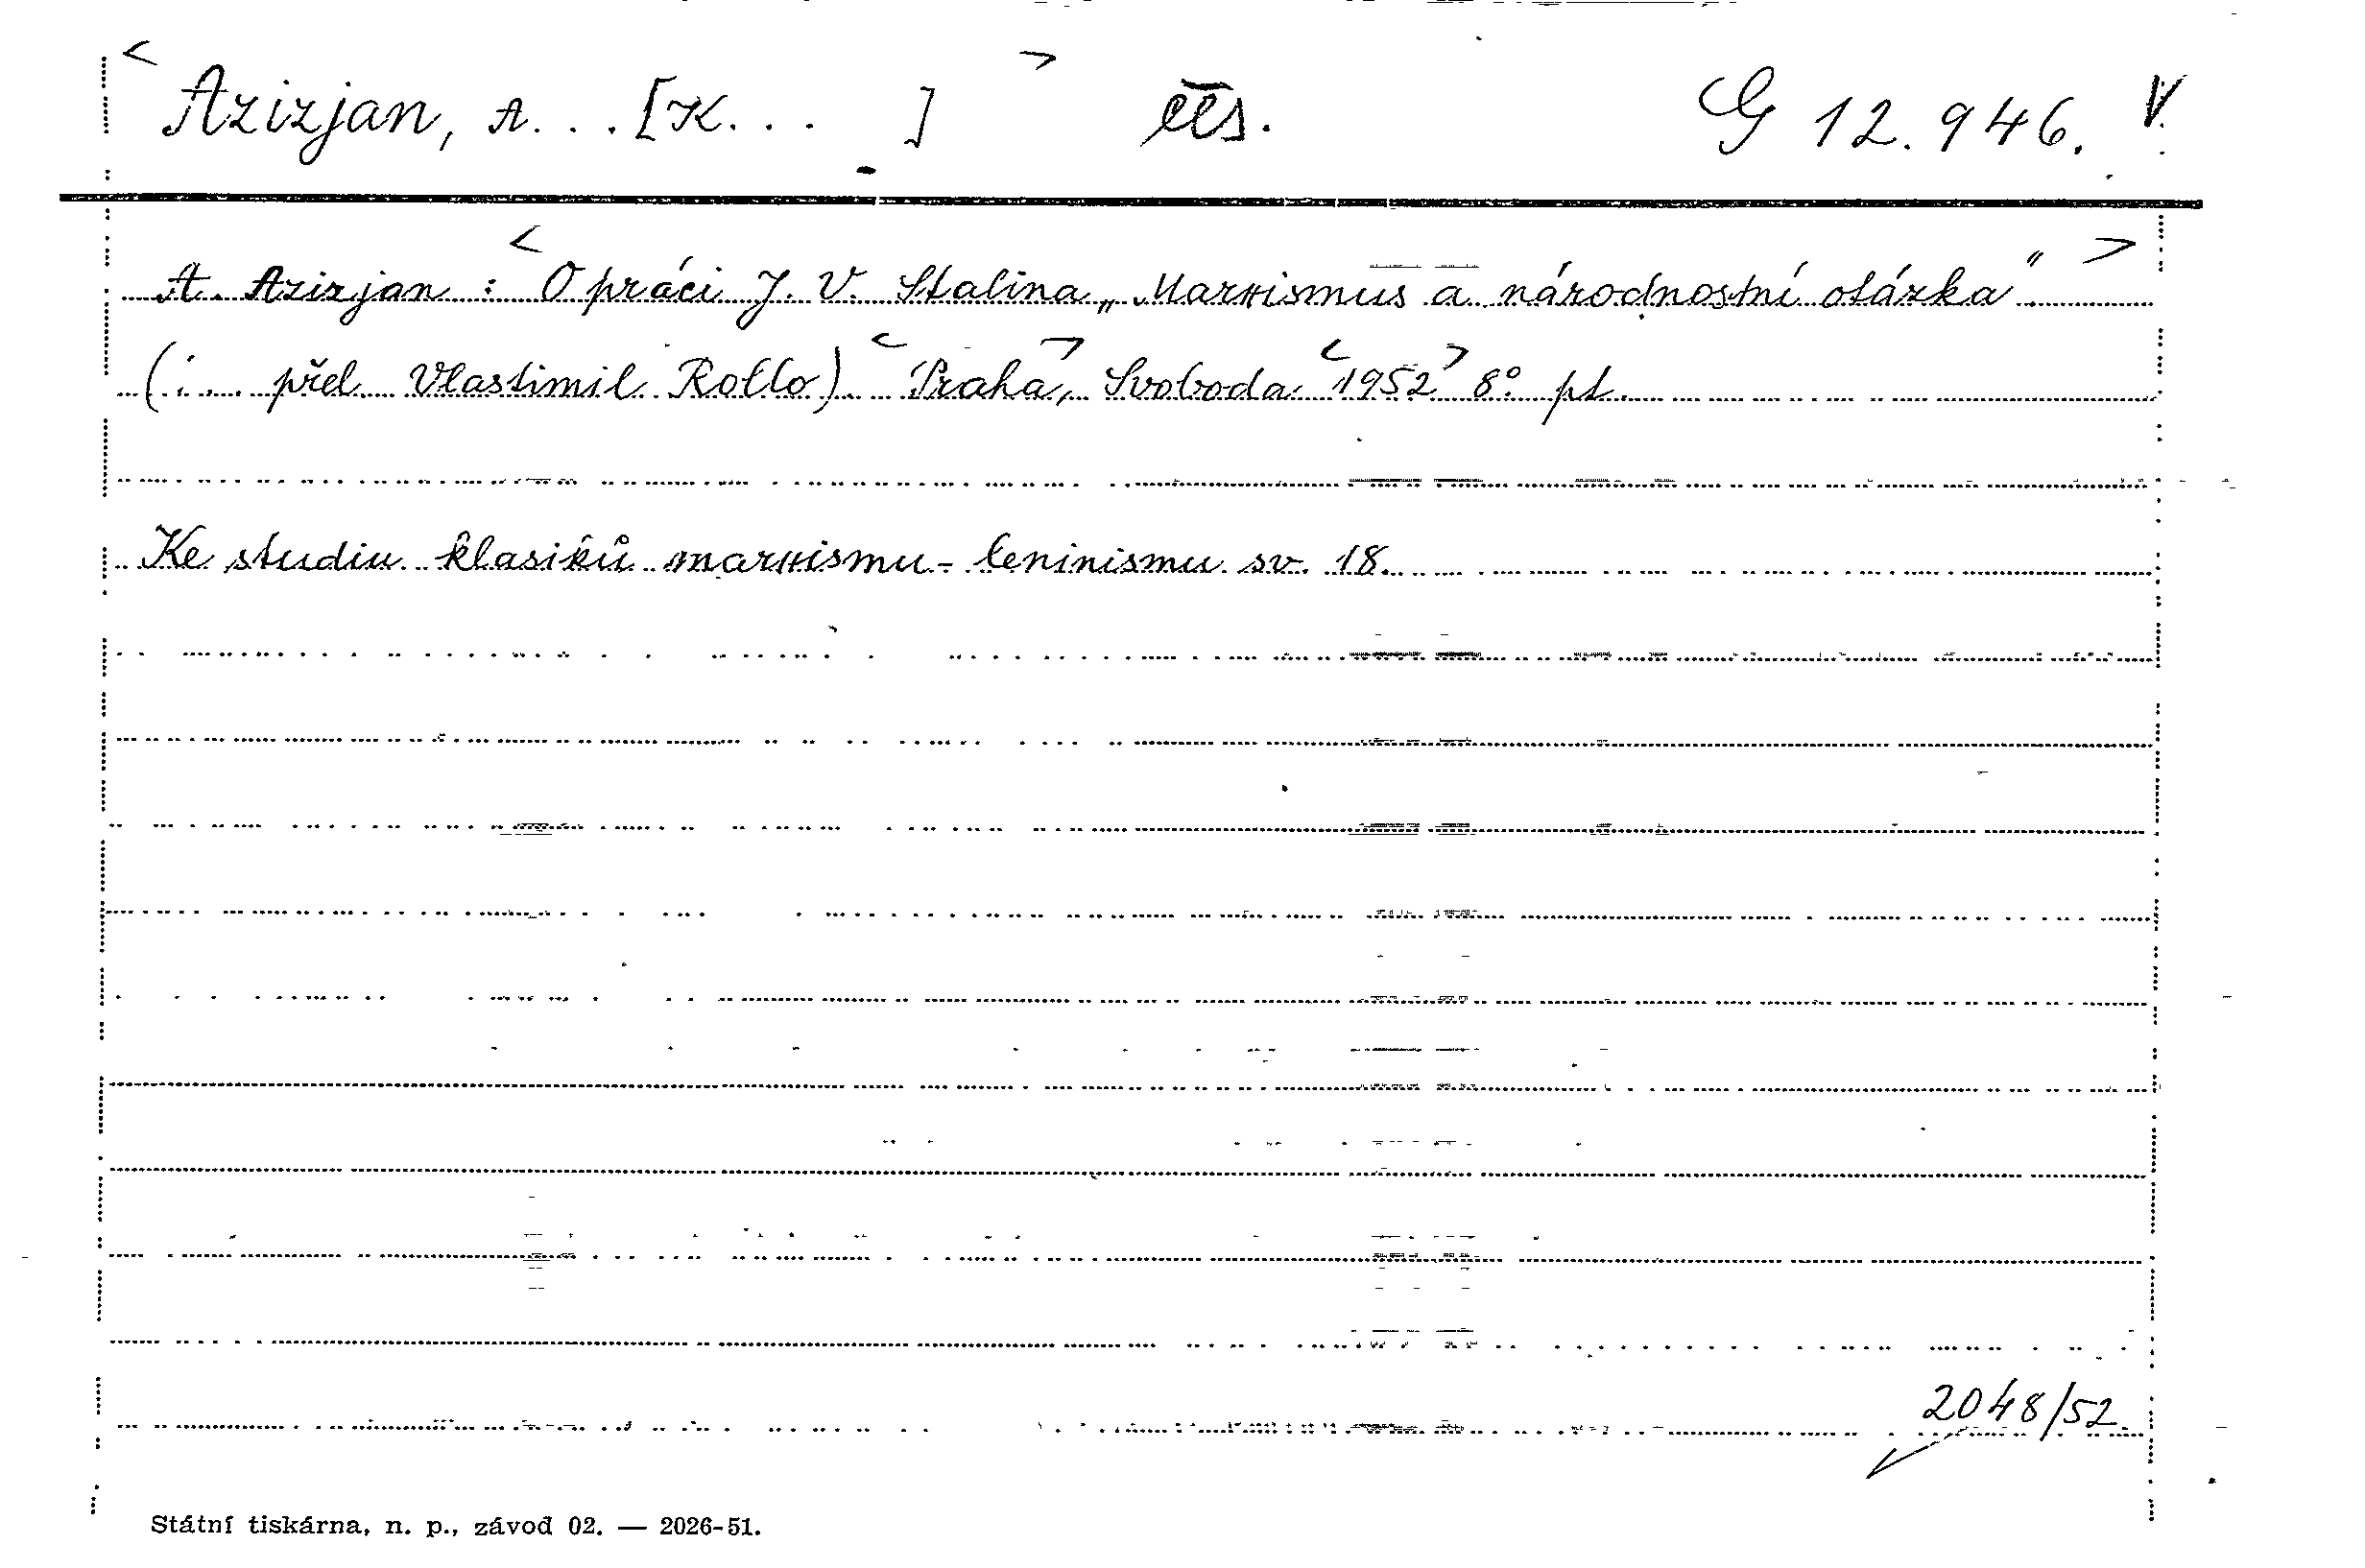 < Azizjan, A. . . [K. . . ] > čes. G 12.946. V.
A. Azizjan : < O práci J. V. Stalina „Marxismus a národnostní otázka“. >
(... přel. Vlastimil Rollo). < Praha >, Svoboda < 1952 > 8° pt.
Ke studiu klasiků marxismu-leninismu sv. 18.
2048/52.
Státní tiskárna, n. p., závod 02. — 2026-51.